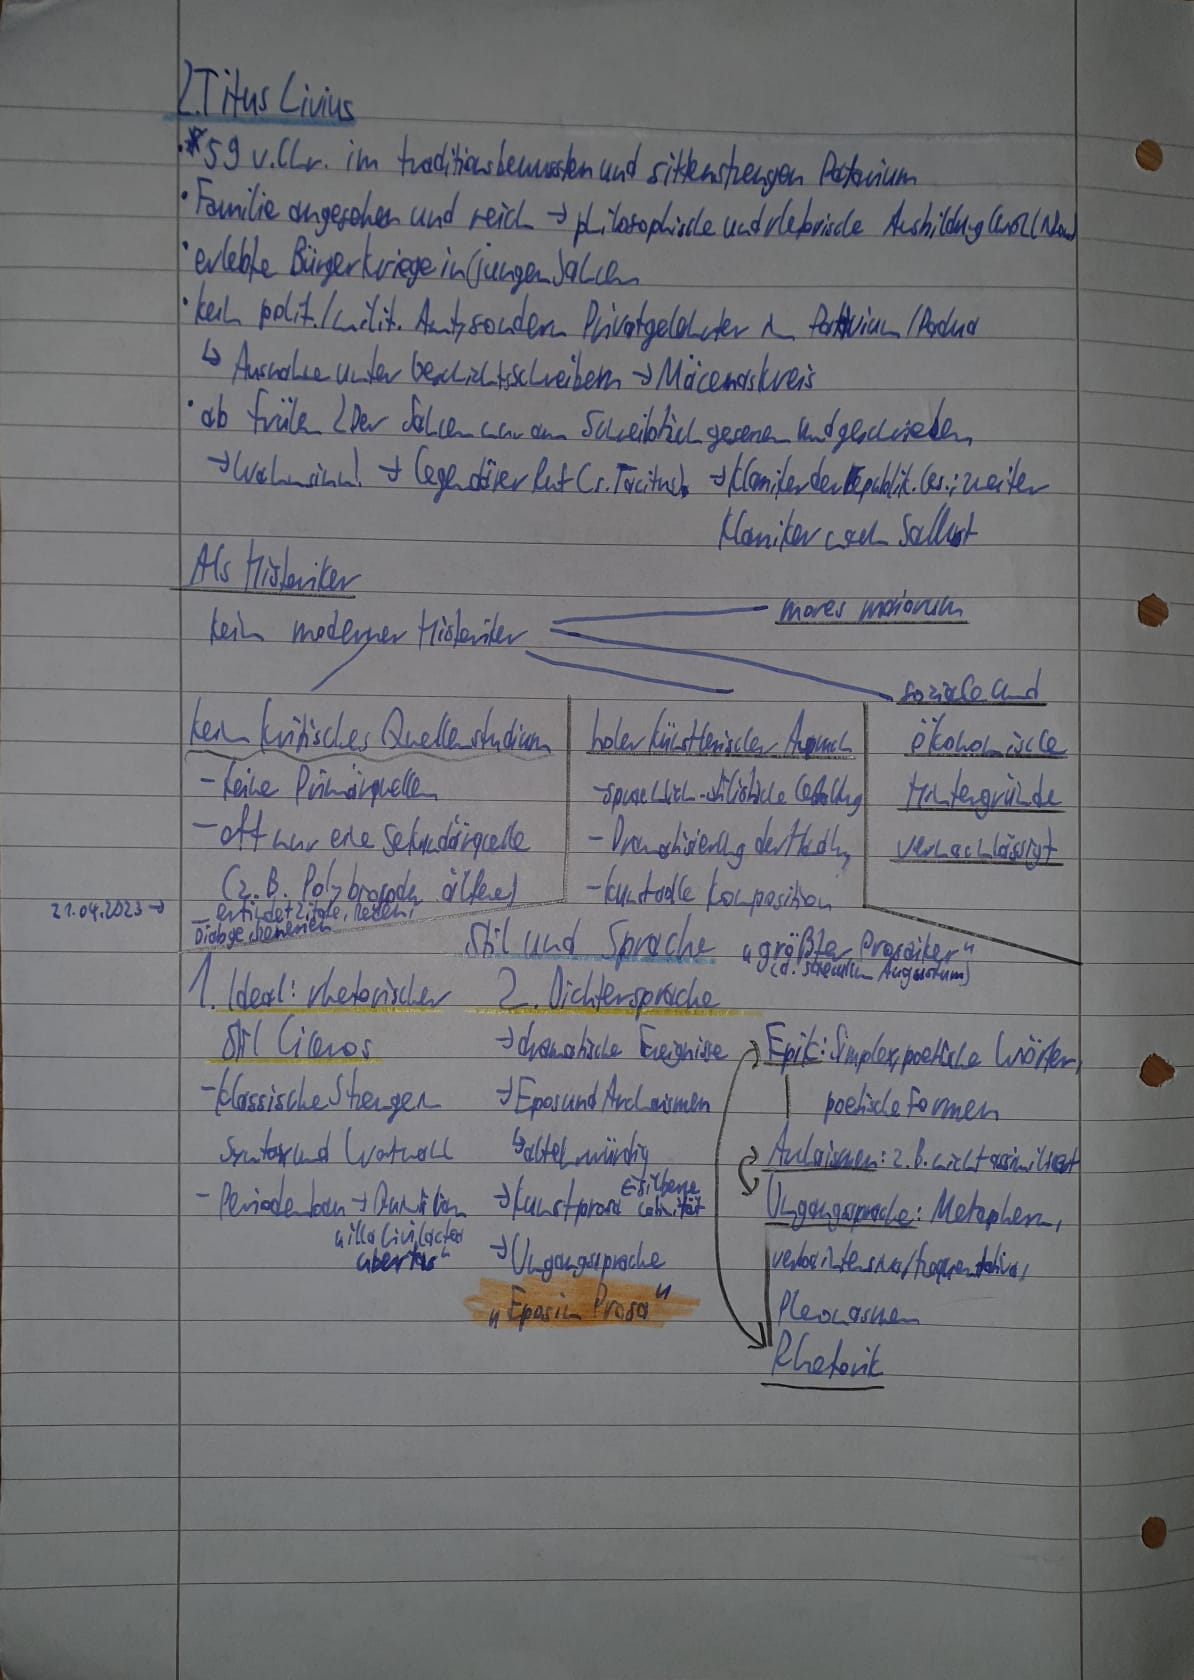 2. Titus Livius
• *59 v. Chr. im traditionsbewussten und sittenstrengen Patavium
• Familie angesehen und reich → philosophische und rhetorische Ausbildung
• erlebte Bürgerkriege in jungen Jahren
• kein polit./milit. Amt, sondern Privatgelehrter in Patavium/Padua
↳ Ausnahme unter Geschichtsschreibern → Mäcenaskreis
• ab frühen 20er Jahren nur am Schreibtisch gesessen und geschrieben
→ Wahnsinn! → legendärer Ruf (s. Tacitus) → Klassiker der Republik Ges.; zweiter
Klassiker nach Sallust
Als Historiker
kein moderner Historiker
mores maiorum
soziale und
ökonomische
Hintergründe
vernachlässigt
kein kritisches Quellenstudium
- keine Primärquellen
- oft nur eine Sekundärquelle
(z.B. Polyb ältere)
21.04.2023 →
- erfindet Zitate, Reden,
Dialoge
hoher künstlerischer Anspruch
- sprachlich-stilistische Gestaltung
- Dramatisierung der Handlg
- kunstvolle Komposition
Stil und Sprache
„größter Prosaiker"
(d. saeculum Augustum)
1. Ideal: rhetorischer
Stil Ciceros
- klassische Strenge
Syntax und Wortwahl
- Periodenbau → Quintilian
„illa Livi lactea
ubertas"
2. Dichtersprache
→ dramatische Ereignisse
→ Epos und Archaismen
↳ altehrwürdig
→ Kunstprosa
∈ silberne
Latinität
→ Umgangssprache
„Epos in Prosa"
Epik: Simplex, poetische Wörter,
poetische Formen
Archaismen: z.B. nicht assimiliert
Umgangssprache: Metaphern,
verba intensiva/frequentativa,
Pleonasmen
Rhetorik